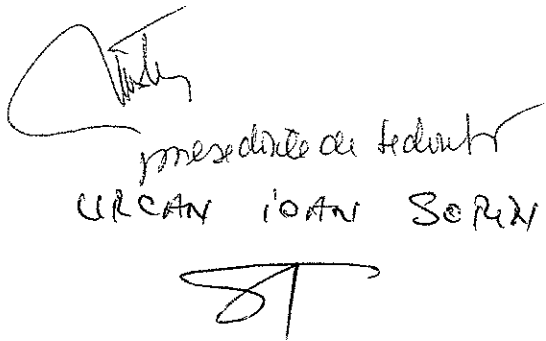 presedinte de sedinta
URCAN IOAN SORIN